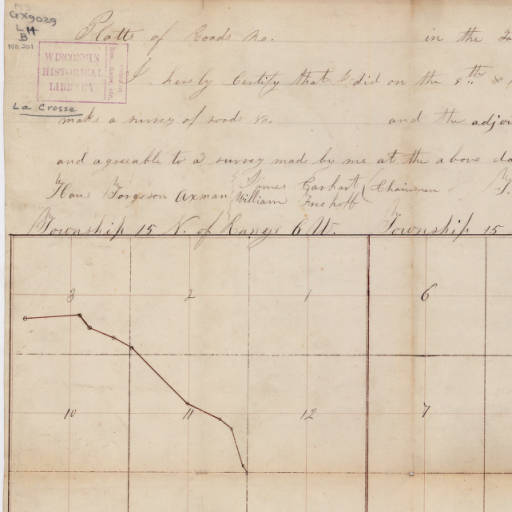 GX9029
LH
B
No. 201
WISCONSIN
HISTORICAL
LIBRARY
La Crosse
Platts of Roads No. in the
I hereby Certify that I did on the 8th &
make a survey of roads No. and the adjoi
and agreeable to a survey made by me at the above da
Hans Torgeson Axman James Garhart
William Chainmen
Township 15 N. of Range 6 W. Township 15
3 2 1 6
10 11 12 7